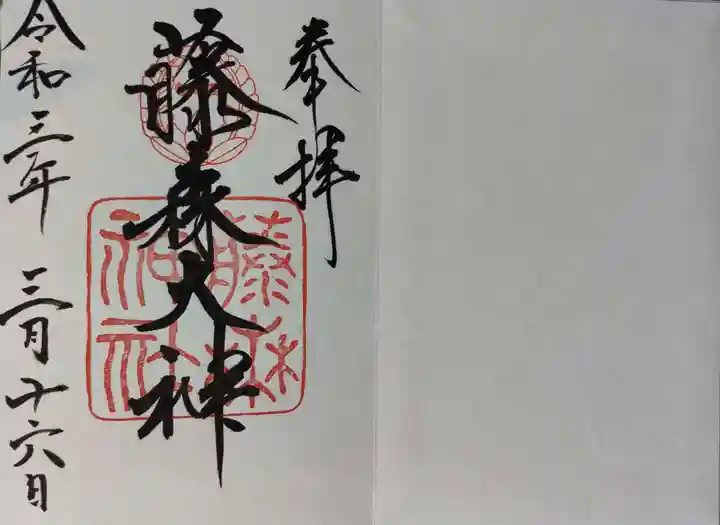 奉拝
藤森大神
藤森
神社
令和三年 三月十六日